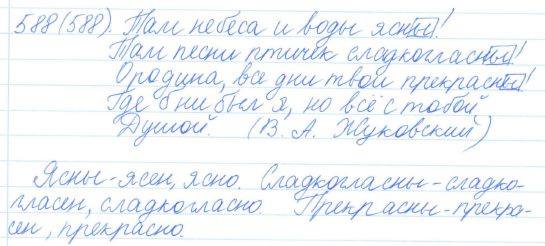 588(588). Там небеса и воды ясны!
Там песни птичек сладкогласны!
О родина, все дни твои прекрасны!
Где б ни был я, но всё с тобой
Душой. (В. А. Жуковский)
Ясны-ясен, ясно. Сладкогласны-сладко-
гласен, сладкогласно. Прекрасны-прекра-
сен, прекрасно.